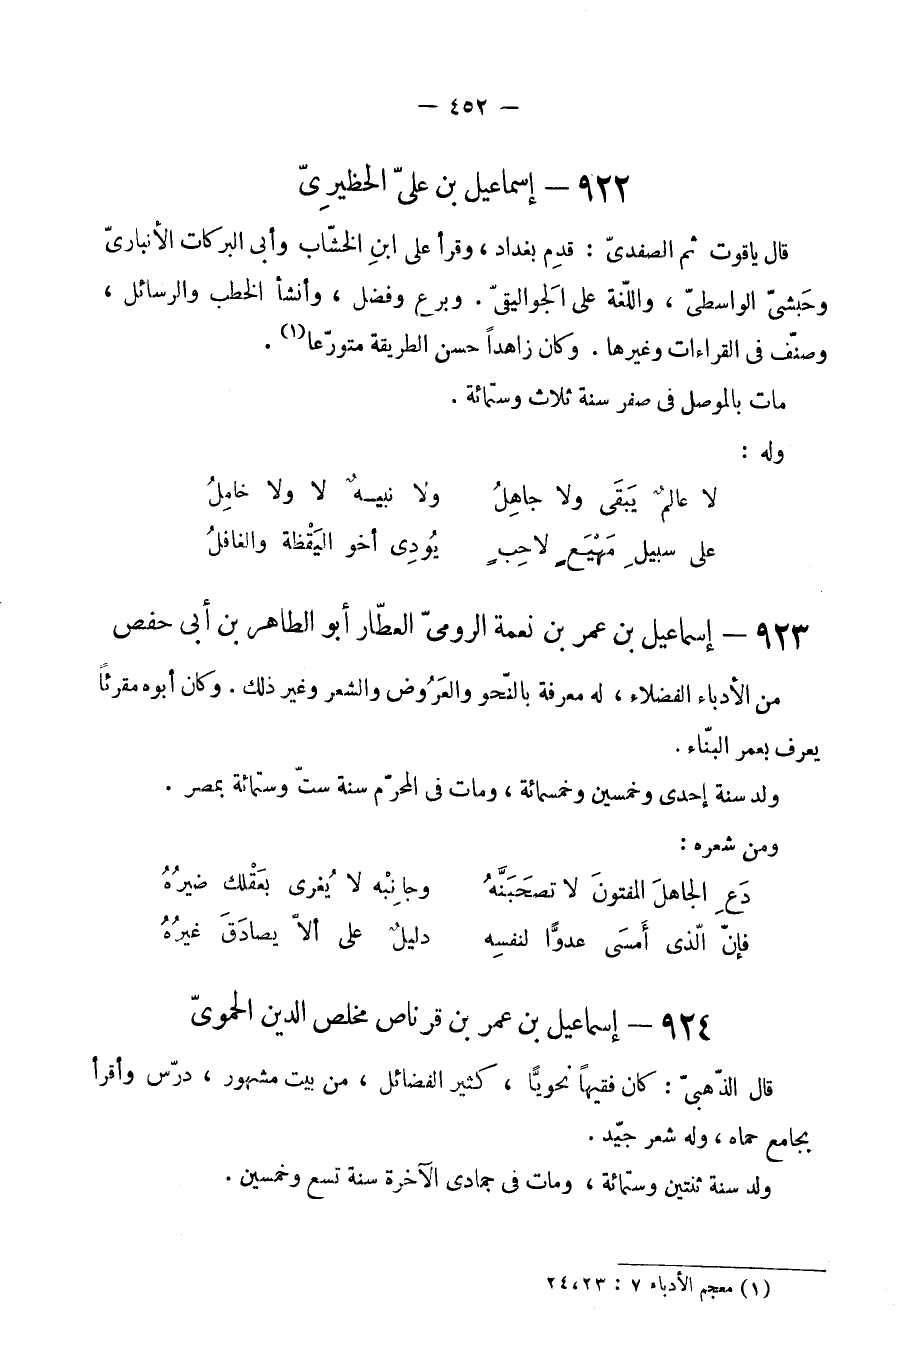 — ٤٥٢ —
٩٢٢ — إسماعيل بن علىّ الحظيرِىّ
قال ياقوت ثم الصفدىّ : قدِم بغداد ، وقرأ على ابنِ الخشّاب وأبى البركات الأنبارىّ
وحَبشىّ الواسطىّ ، واللّغة على الجواليقىّ . وبرع وفضل ، وأنشأ الخطب والرسائل ،
وصنّف فى القراءات وغيرها . وكان زاهداً حسن الطريقة متورّعا(١) .
مات بالموصل فى صفر سنة ثلاث وستّمائة .
وله :
لا عالمٌ يَبقَى ولا جاهِلُ ولا نبيــهٌ لا ولا خامِلُ
على سبيلِ مَهْيَعٍ لاحِبٍ يُودِى أخو اليَقْظة والغافلُ
٩٢٣ — إسماعيل بن عمر بن نعمة الرومىّ العطّار أبو الطاهر بن أبى حفص
من الأدباء الفضلاء ، له معرفة بالنّحو والعَرُوض والشعر وغير ذلك . وكان أبوه مقرئاً
يعرف بعمر البنّاء .
ولد سنة إحدى وخمسين وخمسمائة ، ومات فى المحرّم سنة ستّ وستّمائة بمصر .
ومن شعره :
دَعِ الجاهلَ المفتونَ لا تصحَبَنَّهُ وجانِبْه لا يُغرى بعَقْلك ضيرُهُ
فإنّ الّذى أَمسَى عدوًّا لنفسِه دليلٌ على ألاّ يصادَقَ غيرُهُ
٩٢٤ — إسماعيل بن عمر بن قرناص مخلص الدين الحموىّ
قال الذّهبىّ : كان فقيهاً نحويًّا ، كثير الفضائل ، من بيت مشهور ، درّس وأقرأ
بجامع حماه ، وله شعر جيّد .
ولد سنة ثنتين وستّمائة ، ومات فى جمادى الآخرة سنة تسع وخمسين .
(١) معجم الأدباء ٧ : ٢٣، ٢٤